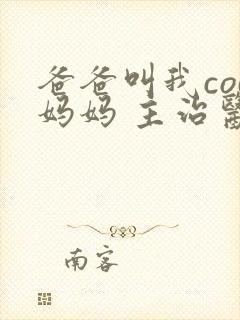 爸爸叫我co
妈妈 主治
南客